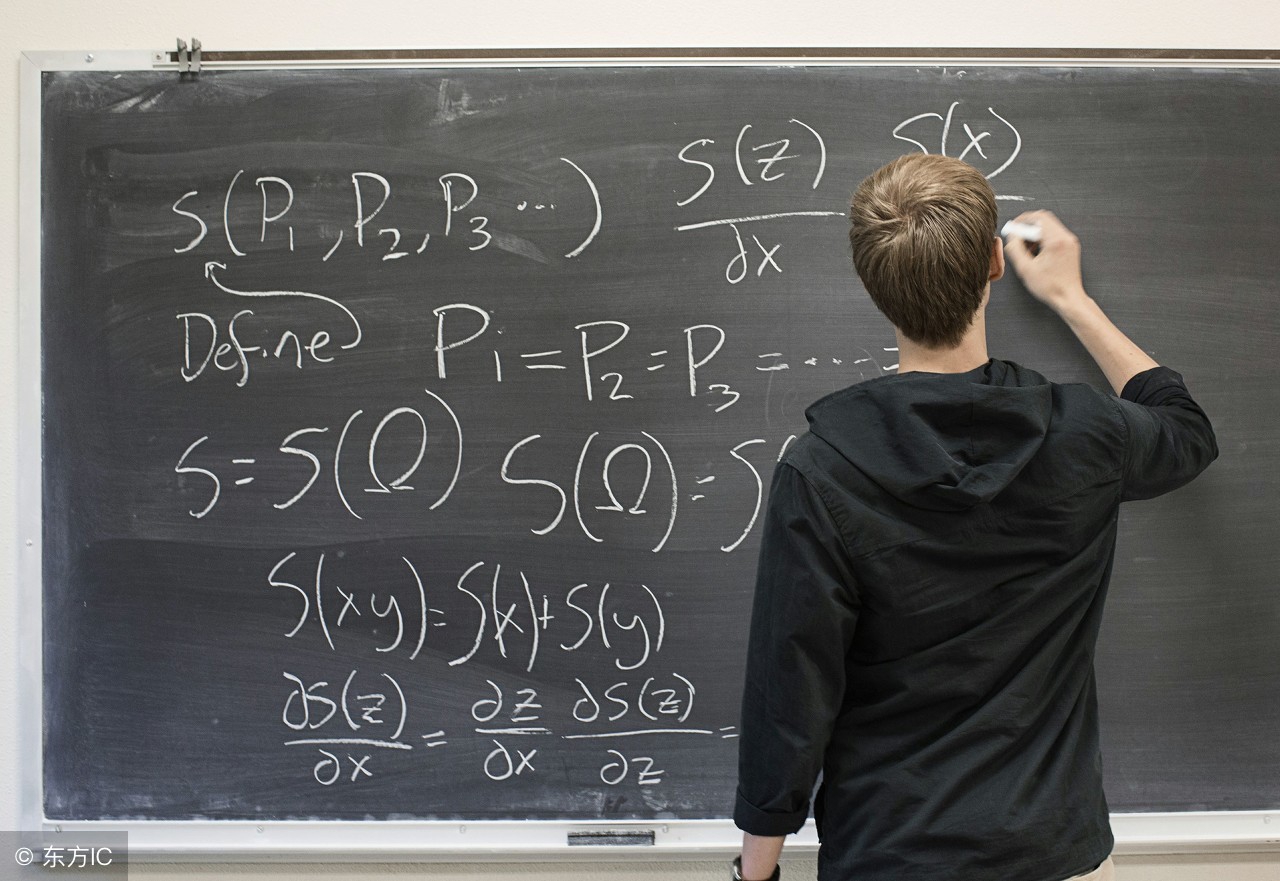 S(P₁, P₂, P₃ ... )
S(z)/∂x S(x)
Define P₁ = P₂ = P₃ = .... =
S = S(Ω) S(Ω) = S(
S(xy) = S(x) + S(y)
∂S(z)/∂x = ∂z/∂x ∂S(z)/∂z =
© 东方IC